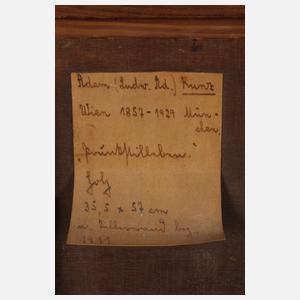 Adam (Ludw. Ad.) Kunz
Wien 1857-1929 Mün-
chen.
"Prunkstilleben."
Holz
35,5 x 57 cm
u.
1911